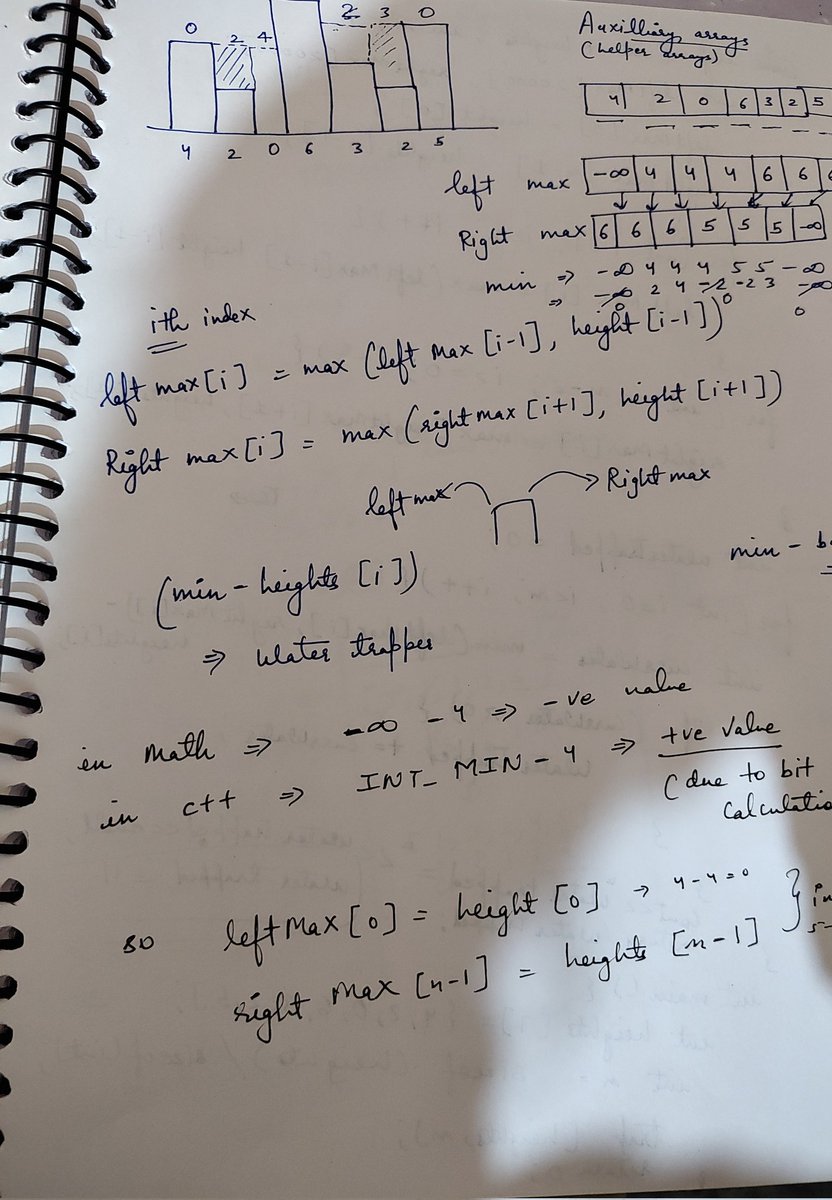 0 2 4 2 3 0
4 2 0 6 3 2 5
Auxilliary arrays
(helper arrays)
4 2 0 6 3 2 5
left max -∞ 4 4 4 6 6
Right max 6 6 6 5 5 5 -∞
min ⇒ -∞ 4 4 4 5 5 -∞
⇒ -∞ 2 4 -2 2 3 -∞
0 0 0
ith index
left max [i] = max (left max [i-1], height [i-1])
Right max [i] = max (right max [i+1], height [i+1])
left max Right max
min -
(min - heights [i])
⇒ Water trapper
in math ⇒ -∞ - 4 ⇒ -ve value
in c++ ⇒ INT_MIN - 4 ⇒ +ve value
(due to bit
so left Max [0] = height [0] → 4-4=0
right Max [n-1] = heights [n-1]